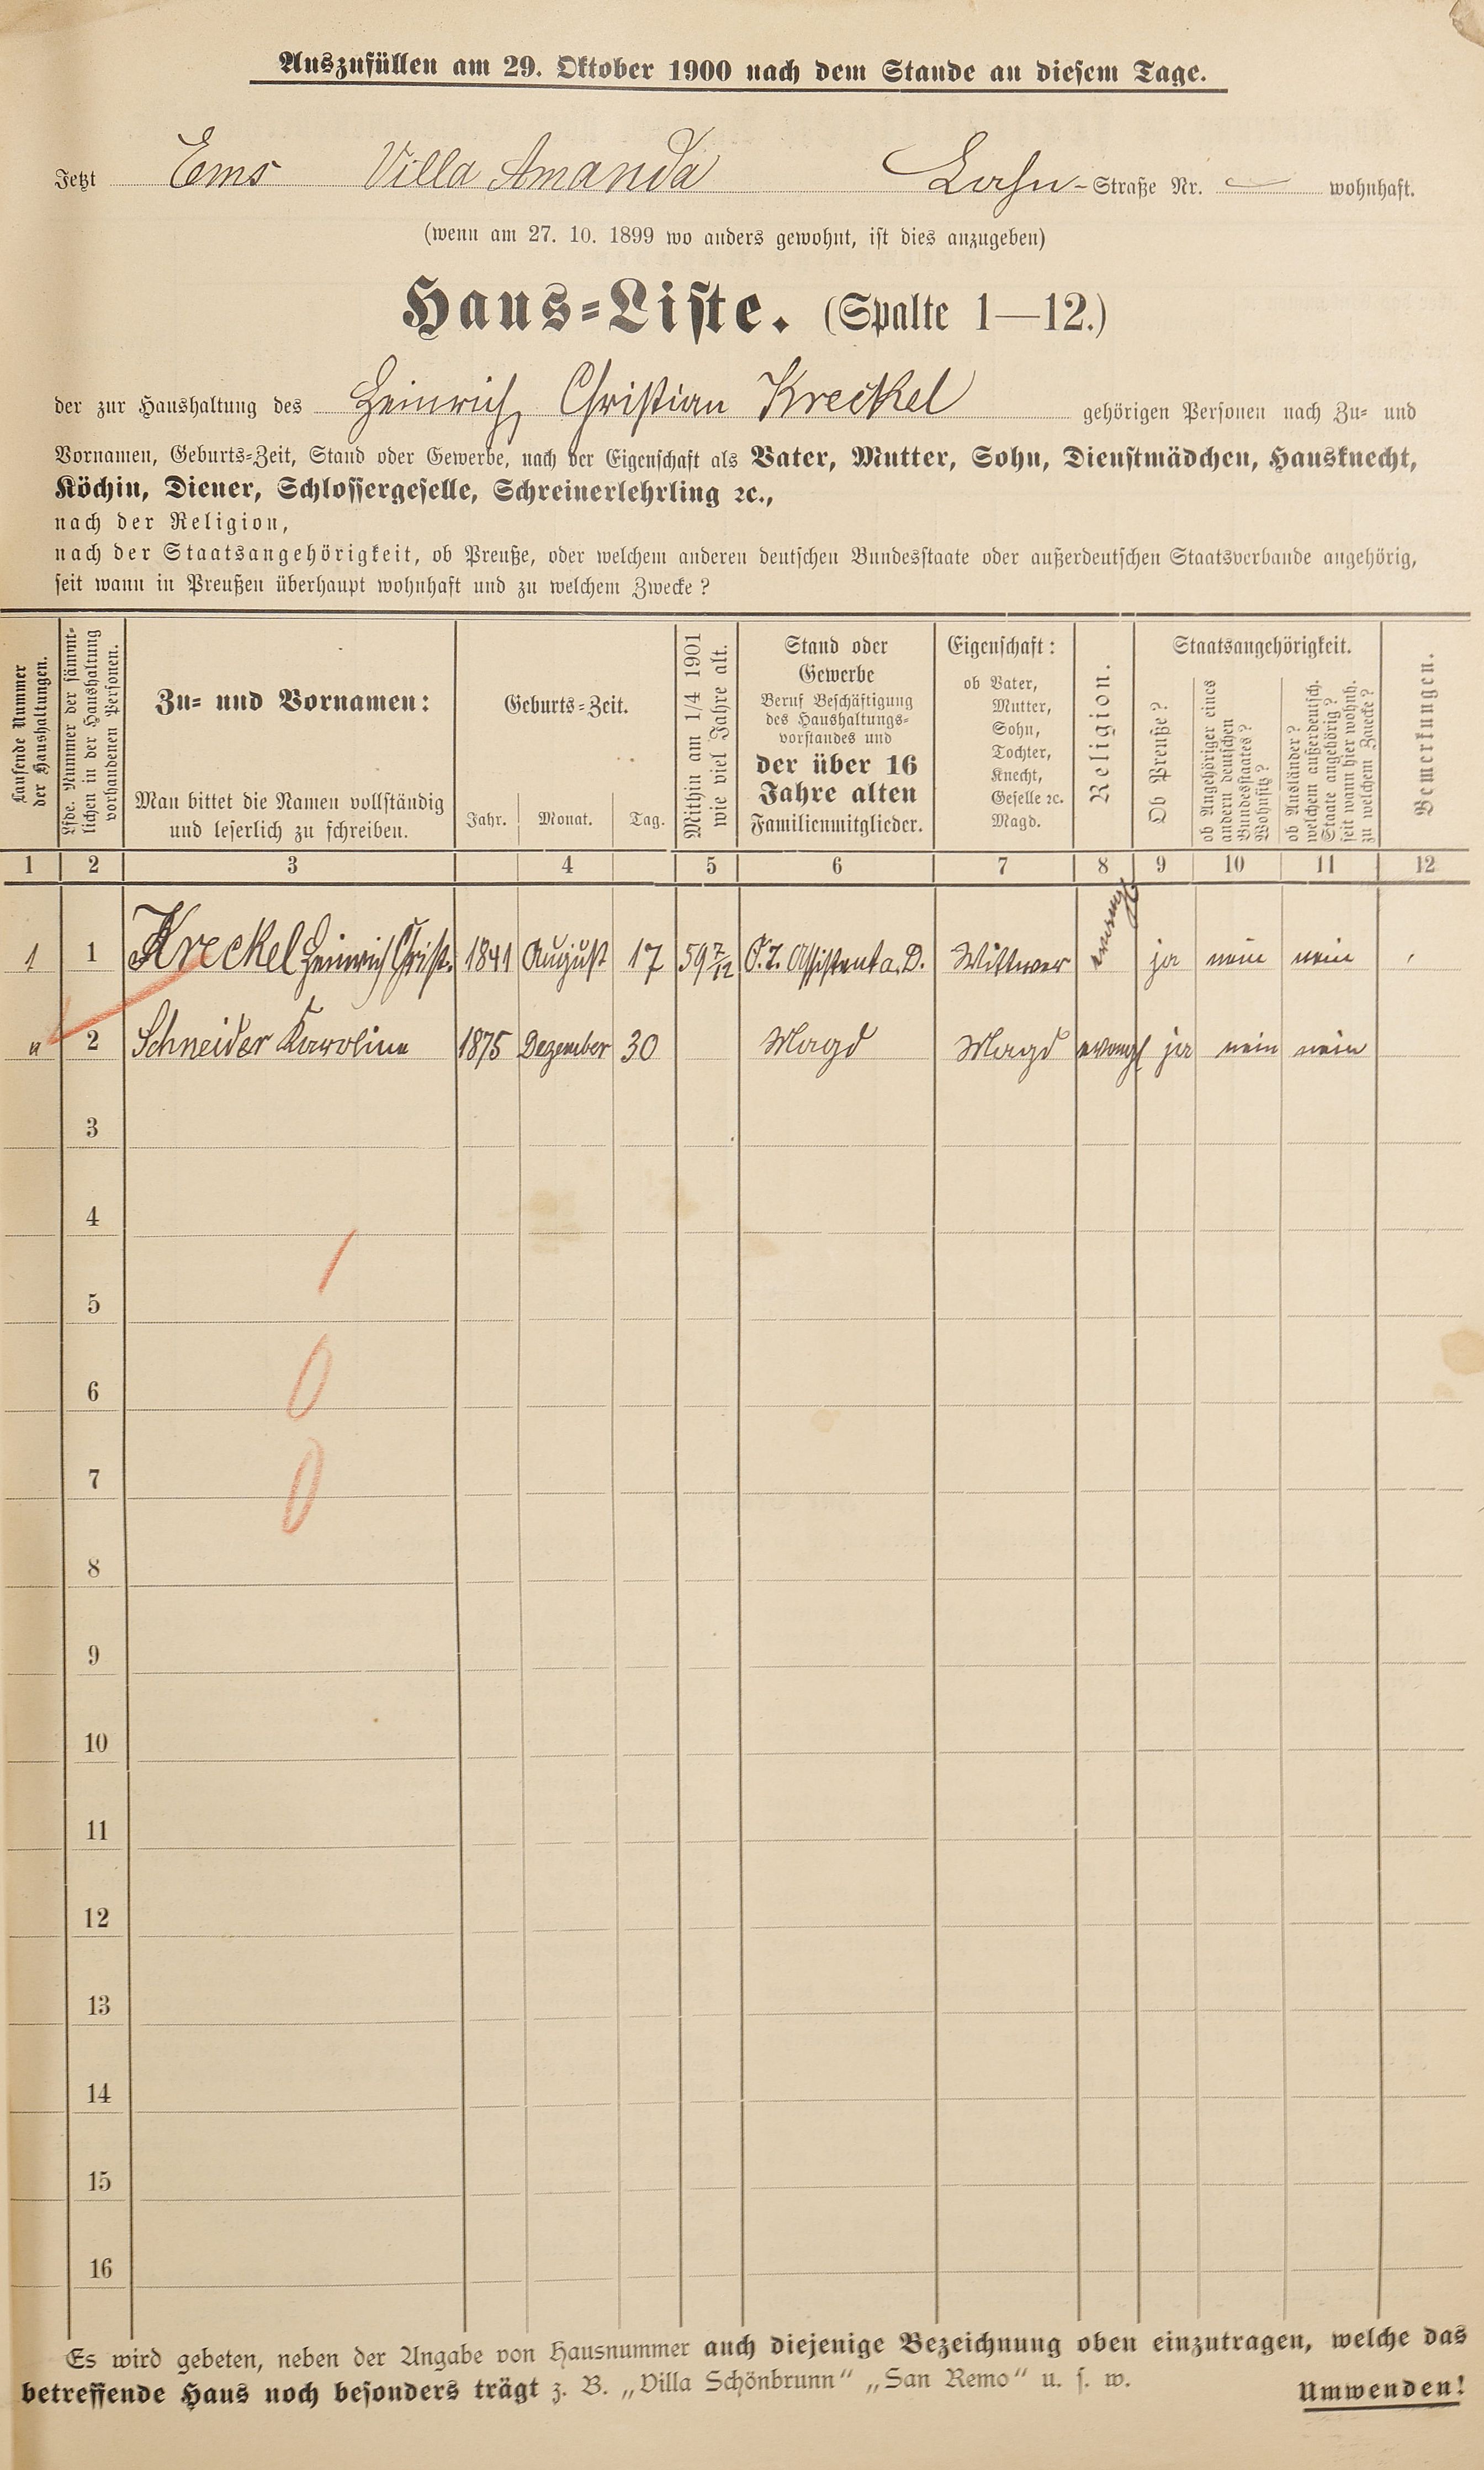 Auszufüllen am 29. Oktober 1900 nach dem Stande an diesem Tage.
Jetzt Ems Villa Amanda Lahn-Straße Nr. — wohnhaft.
(wenn am 27. 10. 1899 wo anders gewohnt, ist dies anzugeben)
Haus-Liste. (Spalte 1—12.)
der zur Haushaltung des Heinrich Christian Kreckel gehörigen Personen nach Zu- und
Vornamen, Geburts-Zeit, Stand oder Gewerbe, nach der Eigenschaft als Vater, Mutter, Sohn, Dienstmädchen, Hausknecht,
Köchin, Diener, Schlossergeselle, Schreinerlehrling ꝛc.,
nach der Religion,
nach der Staatsangehörigkeit, ob Preuße, oder welchem anderen deutschen Bundesstaate oder außerdeutschen Staatsverbande angehörig,
seit wann in Preußen überhaupt wohnhaft und zu welchem Zwecke?
Laufende Nummer
der Haushaltungen.
Lfde. Nummer der sämmt-
lichen in der Haushaltung
vorhandenen Personen.
Zu- und Vornamen:
Man bittet die Namen vollständig
und leserlich zu schreiben.
Geburts-Zeit.
Jahr. Monat. Tag.
Mithin am 1/4 1901
wie viel Jahre alt.
Stand oder
Gewerbe
Beruf Beschäftigung
des Haushaltungs-
vorstandes und
der über 16
Jahre alten
Familienmitglieder.
Eigenschaft:
ob Vater,
Mutter,
Sohn,
Tochter,
Knecht,
Geselle ꝛc.
Magd.
Religion.
Staatsangehörigkeit.
Ob Preuße?
ob Angehöriger eines
andern deutschen
Bundesstaates?
Wohnsitz?
ob Ausländer?
welchem außerdeutsch.
Staate angehörig?
seit wann hier wohnh.
zu welchem Zwecke?
Bemerkungen.
1 2 3 4 5 6 7 8 9 10 11 12
1 1 Kreckel Heinrich Christ. 1841 August 17 59 7/12 Assistent a. D. Wittwer evangl ja nein nein
" 2 Schneider Karoline 1875 Dezember 30 Magd Magd evangl ja nein nein
3
4
5
6
7
8
9
10
11
12
13
14
15
16
1
0
0
Es wird gebeten, neben der Angabe von Hausnummer auch diejenige Bezeichnung oben einzutragen, welche das
betreffende Haus noch besonders trägt z. B. „Villa Schönbrunn“ „San Remo“ u. s. w.
Umwenden!